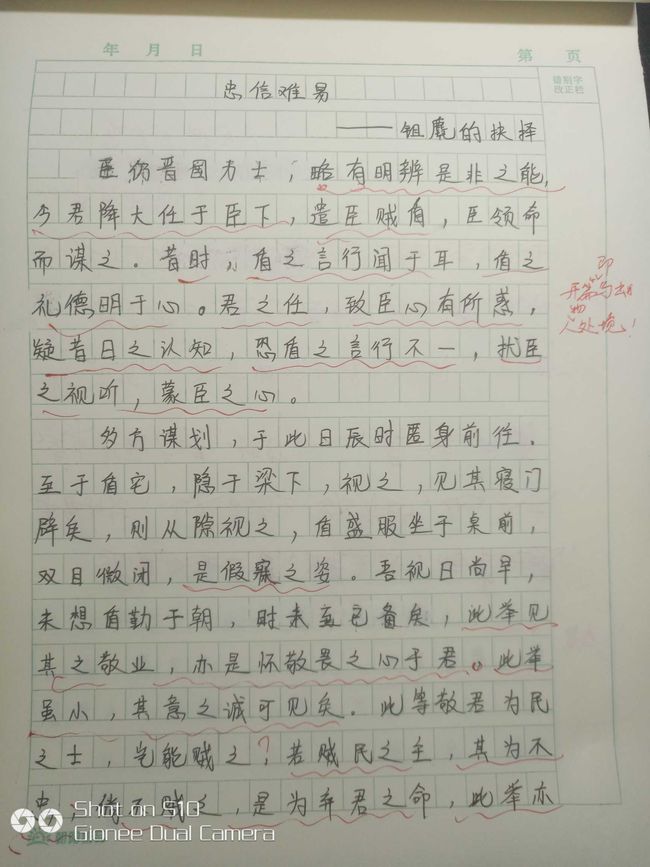 年 月 日 第 页
错别字
改正栏
忠信难易
——鉏麑的抉择
臣为晋国力士,略有明辨是非之能,
今君降大任于臣下,遣臣贼盾,臣领命
而谋之。昔时,盾之言行闻于耳,盾之
礼德明于心。君之任,致臣心有所惑,
疑昔日之认知,恐盾之言行不一,扰臣
之视听,蒙臣之心。
即
开篇写出
人物
处境!
多方谋划,于此日辰时匿身前往,
至于盾宅,隐于梁下,视之,见其寝门
辟矣,则从隙视之,盾盛服坐于桌前,
双目微闭,是假寐之姿。吾视日尚早,
未想盾勤于朝,时未至已备矣,此举见
其之敬业,亦是怀敬畏之心于君。此举
虽小,其意之诚可见矣。此等敬君为民
之士,岂能贼之?若贼民之主,其为不
忠,倘不贼之,是为弃君之命,此举亦
Shot on S10
Gionee Dual Camera